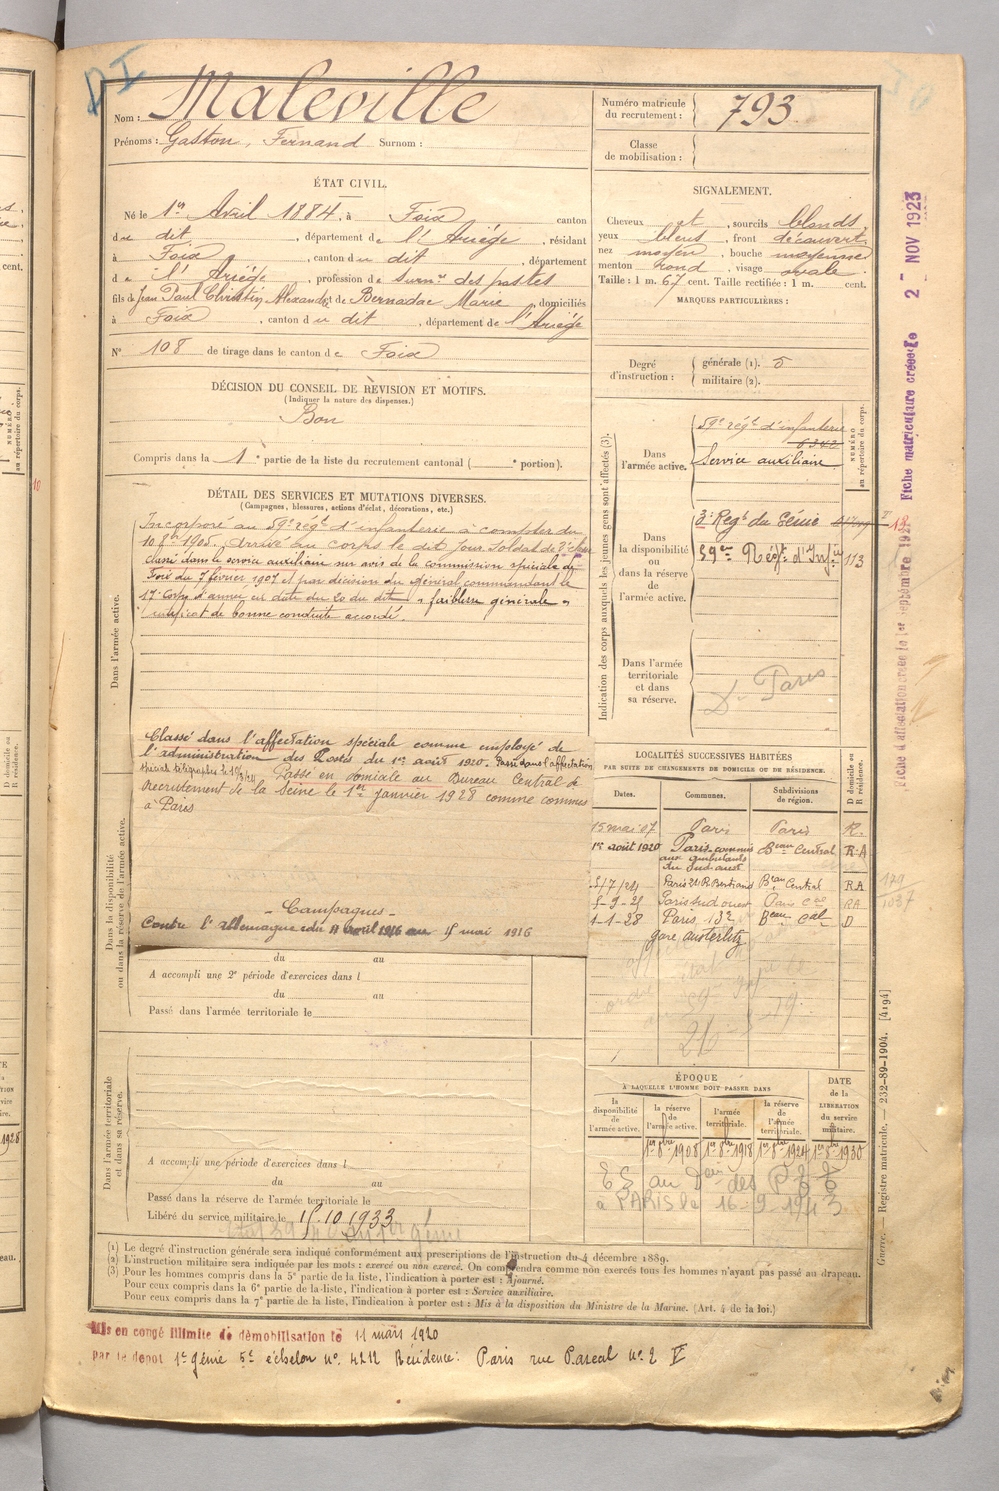 DI
Nom : Maleville
Prénoms : Gaston, Fernand Surnom :
Numéro matricule du recrutement : 793
Classe de mobilisation :
ÉTAT CIVIL.
Né le 1er Avril 1884, à Foix canton
du dit, département de l'Ariège, résidant
à Foix, canton du dit, département
de l'Ariège, profession de surnre des postes
fils de Jean Paul Christin Alexandre et de Bernadac Marie, domiciliés
à Foix, canton du dit, département de l'Ariège
N° 108 de tirage dans le canton de Foix
SIGNALEMENT.
Cheveux et, sourcils blonds
yeux bleus, front découvert
nez moyen, bouche moyenne
menton rond, visage ovale.
Taille : 1 m. 67 cent. Taille rectifiée : 1 m. cent.
MARQUES PARTICULIÈRES :
Degré d'instruction : générale (1). 5
militaire (2).
DÉCISION DU CONSEIL DE RÉVISION ET MOTIFS.
(Indiquer la nature des dispenses.)
Bon
Compris dans la 1e partie de la liste du recrutement cantonal ( e portion).
DÉTAIL DES SERVICES ET MUTATIONS DIVERSES.
(Campagnes, blessures, actions d'éclat, décorations, etc.)
Dans l'armée active.
Incorporé au 59e régt d'infanterie à compter du
10 8bre 1905. Arrivé au corps le dit jour. Soldat de 2e classe
classé dans le service auxiliaire sur avis de la commission spéciale de
Foix du 7 février 1907 et par décision du Général commandant le
17e Corps d'armée en date du 20 du dit "faiblesse générale"
certificat de bonne conduite accordé.
Dans la disponibilité ou dans la réserve de l'armée active.
Classé dans l'affectation spéciale comme employé de
l'administration des Postes du 1er août 1920. Passé dans l'affectation
spéciale télégraphie le
Passé en domicile au Bureau Central de
recrutement de la Seine le 1er janvier 1928 comme commis
à Paris
- Campagnes -
Contre l'allemagne du 11 Avril 1916 au 15 mai 1916
du au
A accompli une 2e période d'exercices dans l
du au
Passé dans l'armée territoriale le
Dans l'armée territoriale et dans sa réserve.
A accompli une période d'exercices dans l
du au
Passé dans la réserve de l'armée territoriale le
Libéré du service militaire le 15.10.1933
Indication des corps auxquels les jeunes gens sont affectés (3).
NUMÉRO au répertoire du corps.
Dans l'armée active.
59e régt d'infanterie
6342
Service auxiliaire
Dans la disponibilité ou dans la réserve de l'armée active.
3e Regt du Génie
59ème Régt d'Infie 113
Dans l'armée territoriale et dans sa réserve.
Paris
LOCALITÉS SUCCESSIVES HABITÉES
PAR SUITE DE CHANGEMENTS DE DOMICILE OU DE RÉSIDENCE.
Dates. Communes. Subdivisions de région. D domicile ou R résidence.
15 mai 07 Paris Paris R.
1er août 1920 Paris commis aux ambulants du Sud ouest Beau Central R.A
5/7/24 Paris 21 R. Bertrand Beau Central RA
5-9-25 Paris sud ouest Paris Cal RA
1-1-28 Paris 132 gare austerlitz Beau Cal D
26-8-19
ÉPOQUE
À LAQUELLE L'HOMME DOIT PASSER DANS
la disponibilité de l'armée active. la réserve de l'armée active. l'armée territoriale. la réserve de l'armée territoriale. DATE de la LIBÉRATION du service militaire.
1er 8bre 1908 1er 8bre 1918 1er 8bre 1924 1er 8bre 1930
à PARIS le 16-9-1943
(1) Le degré d'instruction générale sera indiqué conformément aux prescriptions de l'instruction du 4 décembre 1889.
(2) L'instruction militaire sera indiquée par les mots : exercé ou non exercé. On comprendra comme non exercés tous les hommes n'ayant pas passé au drapeau.
(3) Pour les hommes compris dans la 5e partie de la liste, l'indication à porter est : Ajourné.
Pour ceux compris dans la 6e partie de la liste, l'indication à porter est : Service auxiliaire.
Pour ceux compris dans la 7e partie de la liste, l'indication à porter est : Mis à la disposition du Ministre de la Marine. (Art. 4 de la loi.)
Mis en congé illimité de démobilisation le 11 mars 1920
par le dépot 1er Génie 5e échelon no. 4212 Résidence : Paris rue Pascal no. 2 Ve
Fiche matriculaire créée le 2 - NOV 1923
Fiche d'affectation créée le 1er Septembre
179
1037
Guerre. — Registre matricule. — 232-89-1904. [4194]